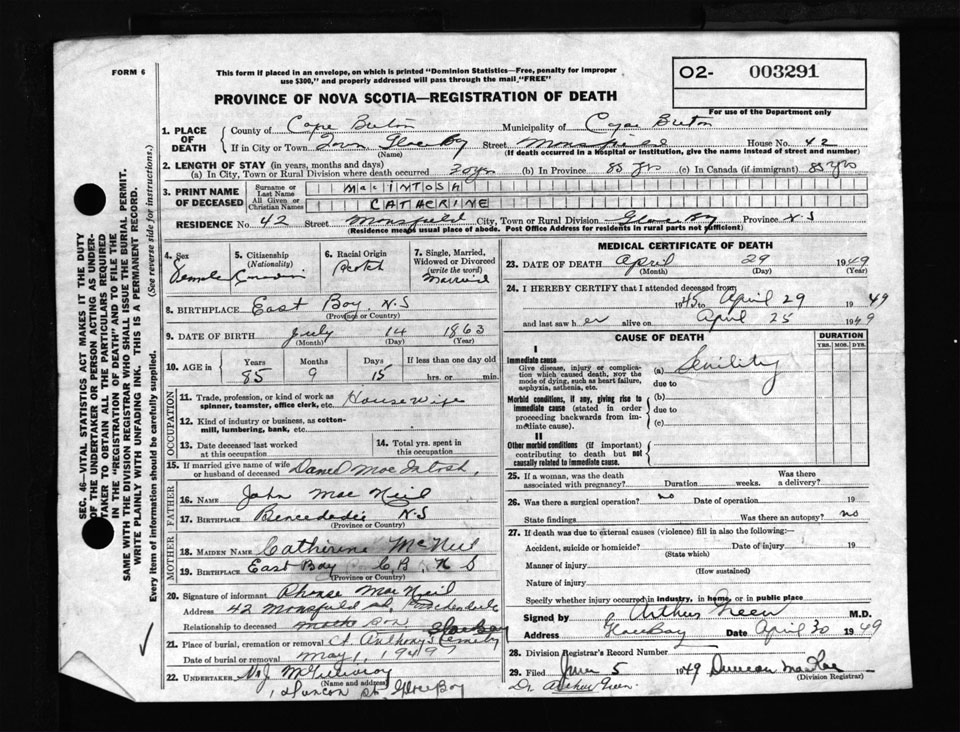 FORM 6
This form if placed in an envelope, on which is printed "Dominion Statistics—Free, penalty for improper
use $300," and properly addressed will pass through the mail, "FREE"
O2- 003291
For use of the Department only
PROVINCE OF NOVA SCOTIA—REGISTRATION OF DEATH
SEC. 46—VITAL STATISTICS ACT MAKES IT THE DUTY
OF THE UNDERTAKER OR PERSON ACTING AS UNDER-
TAKER TO OBTAIN ALL THE PARTICULARS REQUIRED
IN THE "REGISTRATION OF DEATH" AND TO FILE THE
SAME WITH THE DIVISION REGISTRAR WHO SHALL ISSUE THE BURIAL PERMIT.
WRITE PLAINLY WITH UNFADING INK. THIS IS A PERMANENT RECORD.
Every item of information should be carefully supplied. (See reverse side for instructions.)
1. PLACE OF DEATH County of Cape Breton Municipality of Cape Breton
If in City or Town Town Glace Bay Street House No. 42
(Name) (If death occurred in a Hospital or Institution, give the name instead of street and number)
2. LENGTH OF STAY (in years, months and days)
(a) In City, Town or Rural Division where death occurred 30 yrs (b) In Province 85 yrs (c) In Canada (if immigrant) 85 yrs
3. PRINT NAME OF DECEASED Surname or Last Name MacINTOSH
All Given or Christian Names CATHERINE
RESIDENCE No. 42 Street City, Town or Rural Division Glace Bay Province N.S
(Residence means usual place of abode. Post Office Address for residents in rural parts not sufficient)
4. Sex Female 5. Citizenship (Nationality) 6. Racial Origin Scotch 7. Single, Married, Widowed or Divorced (write the word) Married
8. BIRTHPLACE East Bay, N.S
(Province or Country)
9. DATE OF BIRTH July 14 1863
(Month) (Day) (Year)
10. AGE in Years 85 Months 9 Days 15 If less than one day old hrs. or min.
OCCUPATION
11. Trade, profession, or kind of work as spinner, teamster, office clerk, etc. Housewife
12. Kind of industry or business, as cotton-mill, lumbering, bank, etc.
13. Date deceased last worked at this occupation 14. Total yrs. spent in this occupation
15. If married give name of wife or husband of deceased Daniel MacIntosh
FATHER
16. NAME John MacNeil
17. BIRTHPLACE N.S
(Province or Country)
MOTHER
18. MAIDEN NAME Catherine McNeil
19. BIRTHPLACE East Bay C.B. N S
(Province or Country)
20. Signature of informant MacNeil
Address 42
Relationship to deceased
21. Place of burial, cremation or removal St Anthony's Cemetery Glace Bay
Date of burial or removal May 1, 1949
22. UNDERTAKER
(Name and address)
Glace Bay
MEDICAL CERTIFICATE OF DEATH
23. DATE OF DEATH April 29 1949
(Month) (Day) (Year)
24. I HEREBY CERTIFY that I attended deceased from
1945 to April 29 1949
and last saw her alive on April 25 1949
CAUSE OF DEATH DURATION
YRS. MOS. DYS.
I
Immediate cause
Give disease, injury or complication which caused death, NOT the mode of dying, such as heart failure, asphyxia, asthenia, etc.
(a) Senility
due to
Morbid conditions, if any, giving rise to immediate cause (stated in order proceeding backwards from immediate cause).
(b)
due to
(c)
II
Other morbid conditions (if important) contributing to death but not causally related to immediate cause.
25. If a woman, was the death associated with pregnancy? Duration weeks. Was there a delivery?
26. Was there a surgical operation? no Date of operation 19
State findings Was there an autopsy? no
27. If death was due to external causes (violence) fill in also the following:—
Accident, suicide or homicide? Date of injury 19
(State which)
Manner of injury
(How sustained)
Nature of injury
Specify whether injury occurred in industry, in home, or in public place
Signed by Arthur Green M.D.
Address Glace Bay Date April 30 1949
28. Division Registrar's Record Number
29. Filed June 5 1949 Duncan
(Division Registrar)
Dr. Arthur Green.